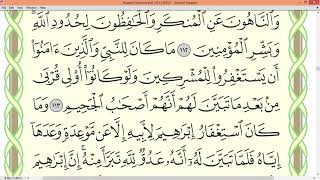 وَٱلنَّاهُونَ عَنِ ٱلْمُنكَرِ وَٱلْحَٰفِظُونَ لِحُدُودِ ٱللَّهِ
وَبَشِّرِ ٱلْمُؤْمِنِينَ ١١٢ مَا كَانَ لِلنَّبِيِّ وَٱلَّذِينَ ءَامَنُوٓا۟
أَن يَسْتَغْفِرُوا۟ لِلْمُشْرِكِينَ وَلَوْ كَانُوٓا۟ أُو۟لِى قُرْبَىٰ
مِنۢ بَعْدِ مَا تَبَيَّنَ لَهُمْ أَنَّهُمْ أَصْحَٰبُ ٱلْجَحِيمِ ١١٣ وَمَا
كَانَ ٱسْتِغْفَارُ إِبْرَٰهِيمَ لِأَبِيهِ إِلَّا عَن مَّوْعِدَةٍ وَعَدَهَآ
إِيَّاهُ فَلَمَّا تَبَيَّنَ لَهُۥٓ أَنَّهُۥ عَدُوٌّ لِّلَّهِ تَبَرَّأَ مِنْهُ ۚ إِنَّ إِبْرَٰهِيمَ